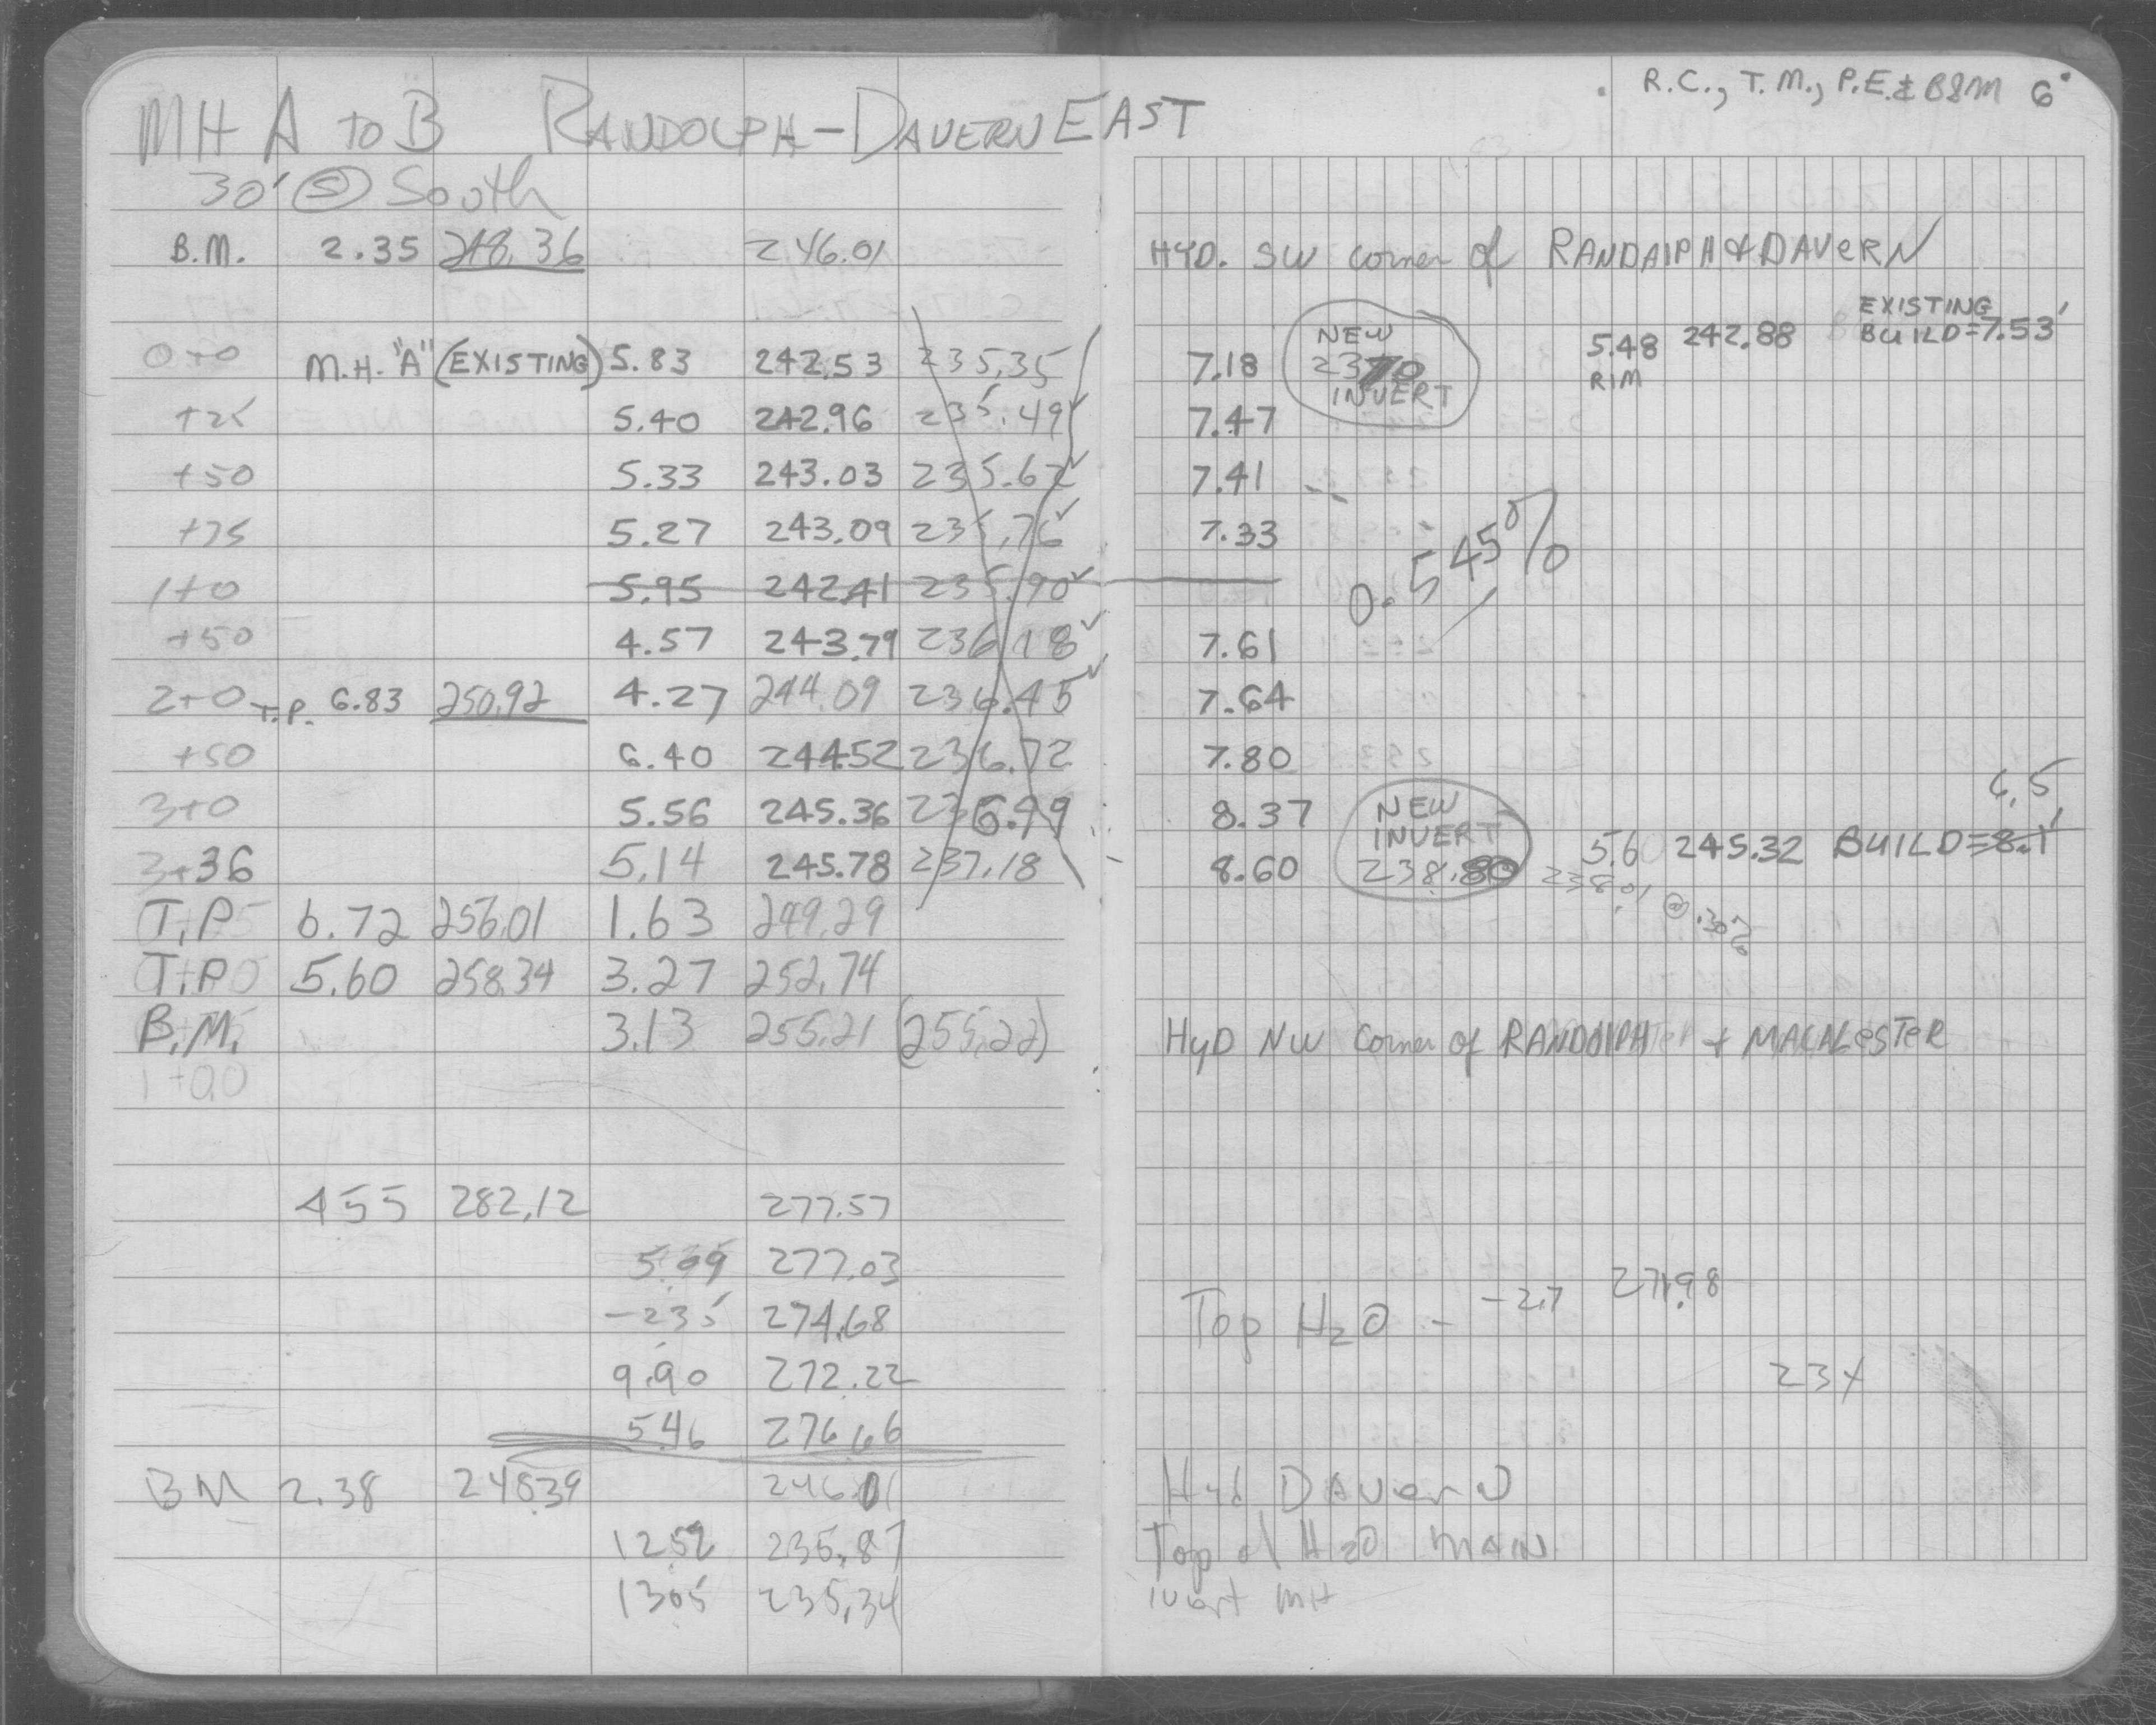 R.C., T.M., P.E. & B&M 6°
MH A TO B RANDOLPH-DAVERN EAST
30' S South
B.M. 2.35 248.36 246.01 HYD. SW corner of RANDAlPH & DAVERN
0+0 M.H. "A" (EXISTING) 5.83 242.53 235.35 7.18 NEW INVERT 5.48 RIM 242.88 EXISTING BUILD=7.53'
+25 5.40 242.96 235.49 7.47
+50 5.33 243.03 235.62 7.41
+75 5.27 243.09 235.76 7.33
0.545%
1+0 5.95 242.41 235.90
+50 4.57 243.79 236.18 7.61
2+0 T.P. 6.83 250.92 4.27 244.09 236.45 7.64
+50 6.40 244.52 236.72 7.80
3+0 5.56 245.36 236.99 8.37 6.5
3+36 5.14 245.78 237.18 8.60 NEW INVERT 238.80 5.60 245.32 BUILD=8.1'
238.01 @ .30%
T.P 6.72 256.01 1.63 249.29
T.P 5.60 258.34 3.27 252.74
B.M. 3.13 255.21 (255.22) HyD NW Corner of RANDOlPH + MACALESTER
1+00
455 282.12 277.57
5.09 277.03
-235 274.68 Top H2O - -2.7 271.98
9.90 272.22 23+
5.46 276.66
BM 2.38 248.39 246.01 Hyd DAVERN
12.52 235.87 Top of H2O MAIN
13.05 235.34 ivert MH